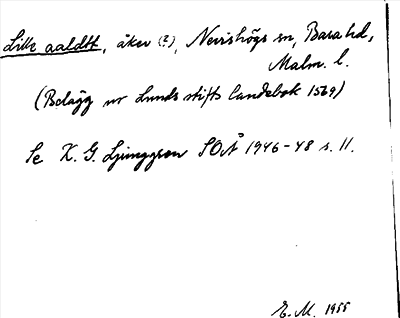 Lille aaldtt, åker (?), Nevishögs sn, Bara hd,
Malm. l.
(Belägg ur Lunds stifts landebok 1569)
Se K. G. Ljunggren SOÅ 1946-48 s. 11.
E. M. 1955